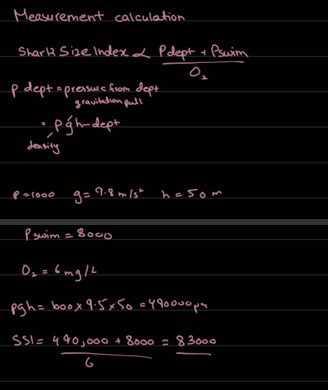 Measurement calculation
Shark Size Index ∝ Pdept + Pswim
O₂
P dept = pressure from dept
gravitation pull
= ρgh - dept
density
ρ = 1000 g = 9.8 m/s² h = 50 m
Pswim = 8000
O₂ = 6 mg/L
ρgh = 1000 x 9.5 x 50 = 490000 pa
SSI = 490,000 + 8000 = 83000
6